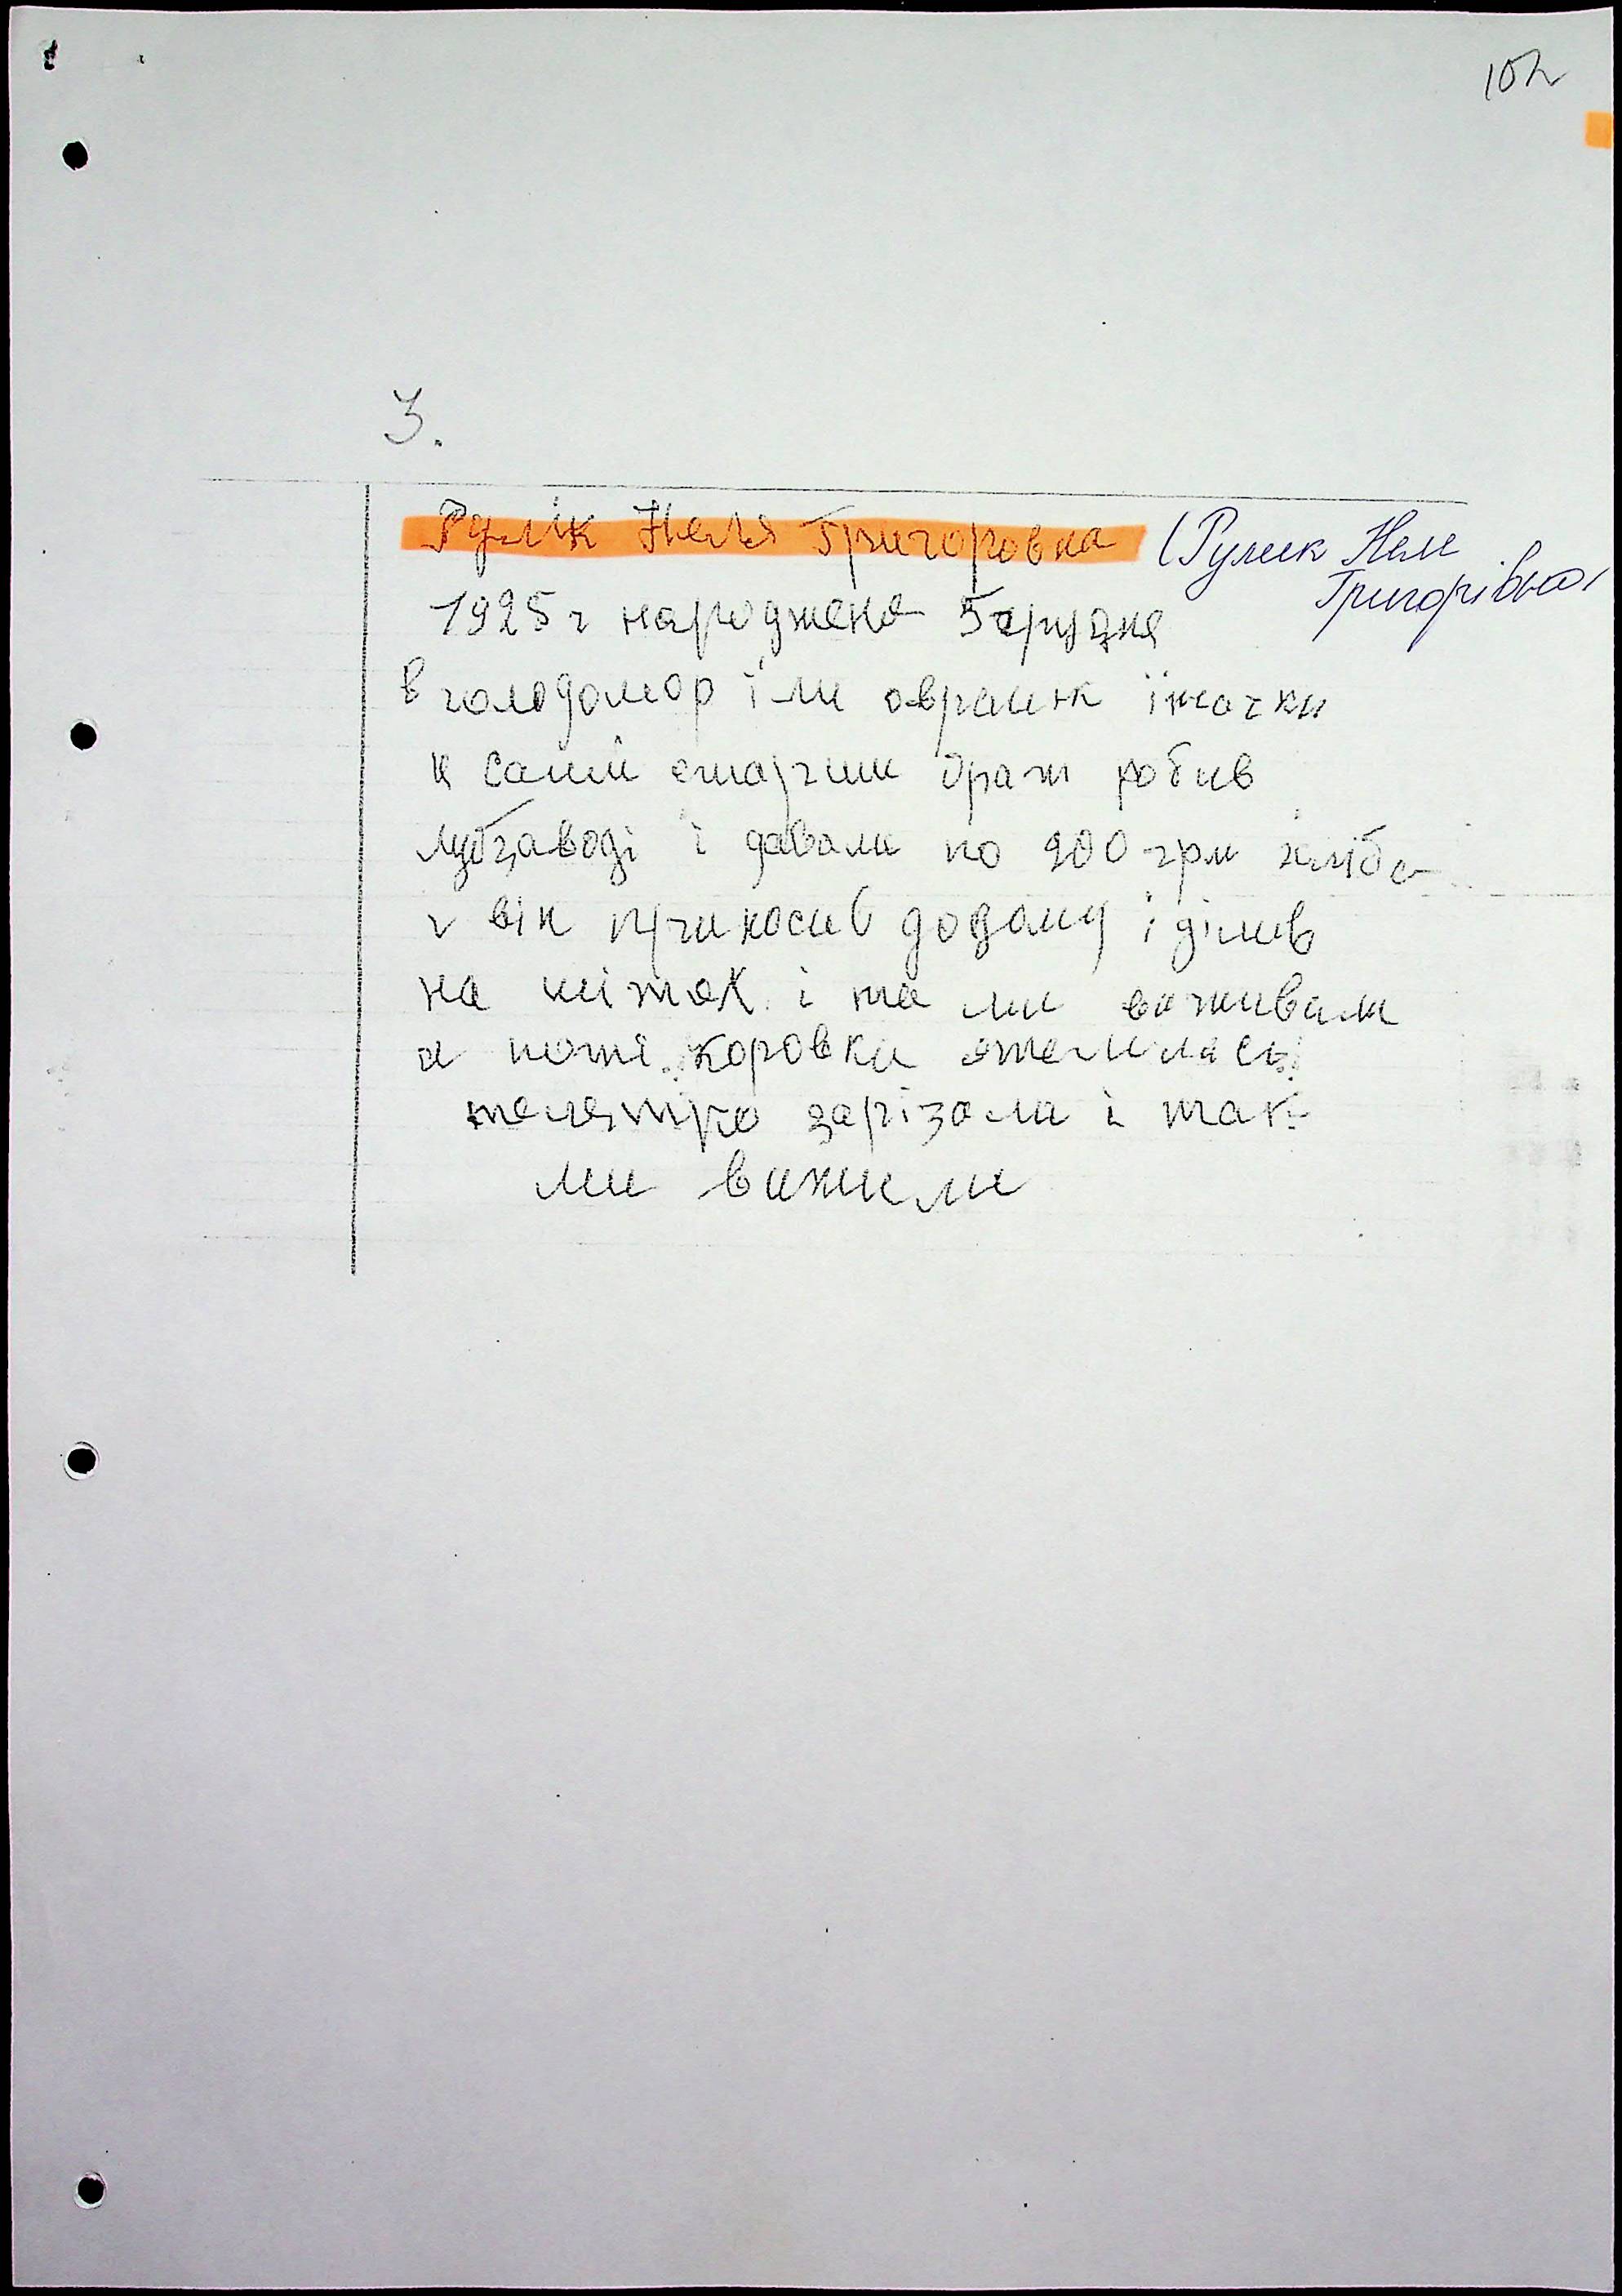 102
3.
Рулік Неля Григоровна (Рулик Неле
Григорівна,
1925 г народжена 5 грудня
в голодомор їли оврашок їжачки
самий старший брат робив
лубзаводі і давали по 200 грм хліба
і він приносив додому і ділив
на шіток і та ми виживали
а поті коровка отелилась
телятко зарізали і так
ми вижили